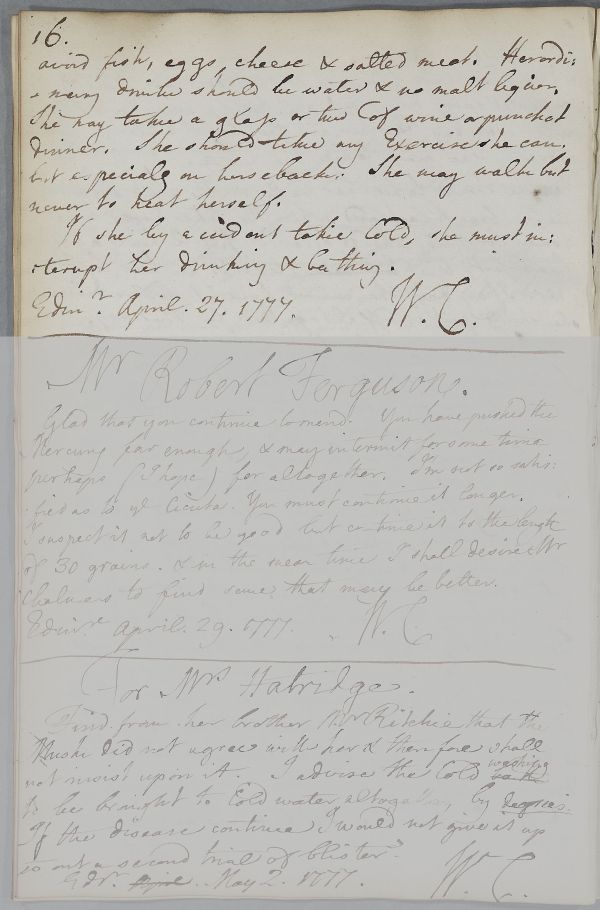 16.
avoid fish, eggs, cheese & salted meat. Her ordi:
nary drink should be water & no malt liquor.
She may take a glass or two of wine or punch at
dinner. She should take any Exercise she can.
but especialy on horseback. She may walk but
never to heat herself.
If she by accident takie Cold, she must in:
:terrupt her drinking & bathing.
Edinr. April. 27. 1777. W. C.
Mr Robert Ferguson.
Glad that you continue to mend. You have pushed the
Mercury far enough, & may intermit for some time
perhaps (I hope) for altogether. I'm not so satis:
:fied as to ye Cicuta. You must continue it longer.
I suspect it not to be good but continue it to the length
of 30 grains. & in the mean time I shall desire Mr
Chalmers to find some that may be better.
Edinr. April. 29. 1777. W. C.
For Mrs Hatridge.
Find from her brother Mr Ritchie that the
Musk did not agree with her & therefore shall
not insist upon it. I advise the Cold washing
to be brought to Cold water, altogether, by degrees.
If the disease continue I would not give it up
without a second trial of blister.
Edr. April. May 2. 1777. W. C.